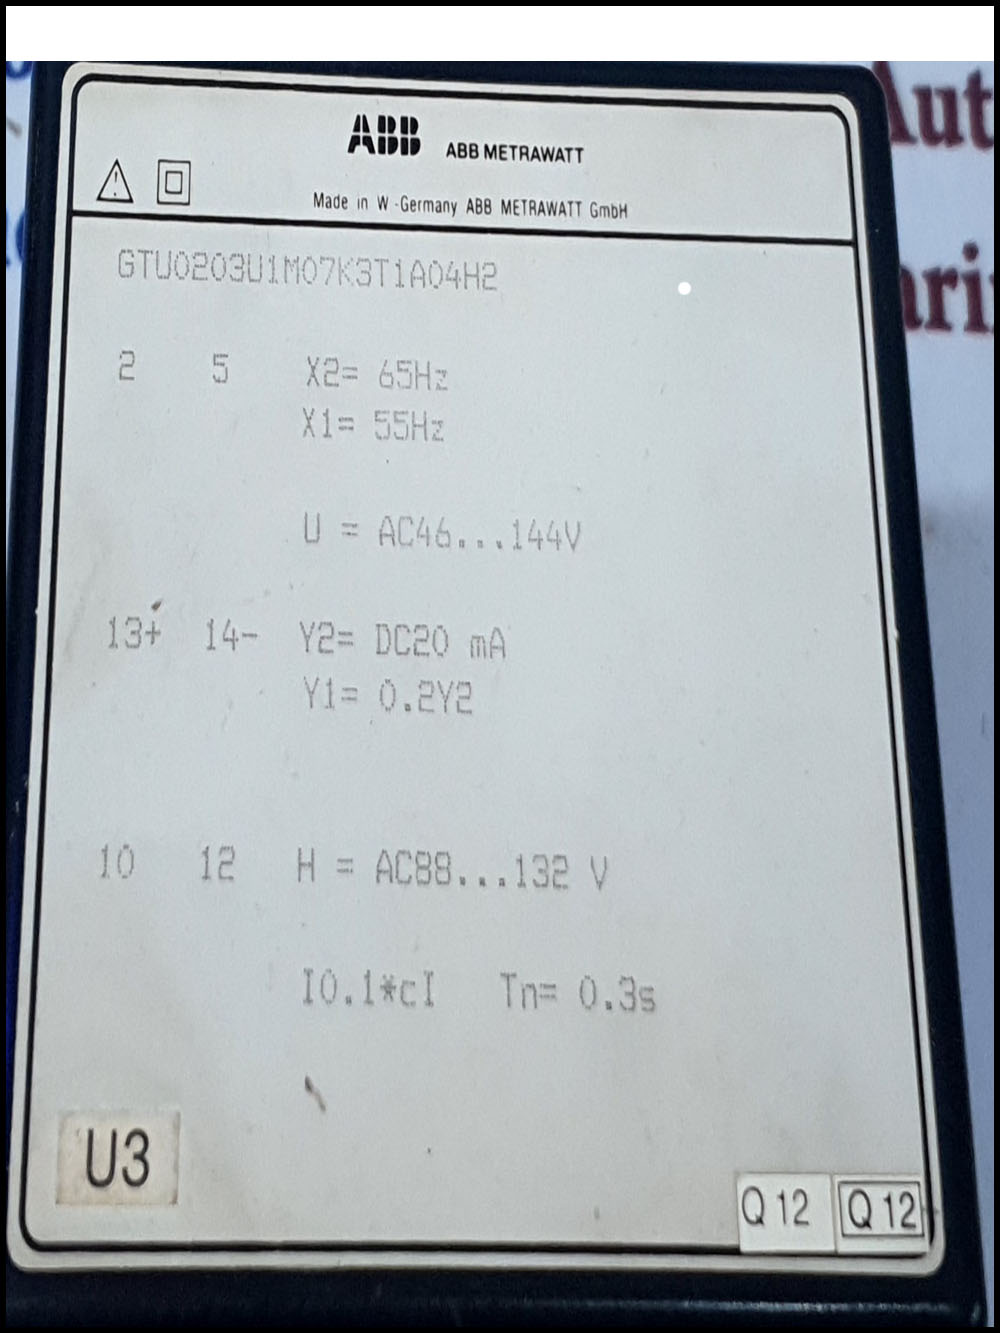 ABB ABB METRAWATT
Made in W-Germany ABB METRAWATT GmbH
GTU0203U1M07K3T1A04H2
2 5 X2= 65Hz
X1= 55Hz
U = AC46...144V
13+ 14- Y2= DC20 mA
Y1= 0.2Y2
10 12 H = AC88...132 V
I0.1*cI Tn= 0.3s
U3
Q 12 Q 12